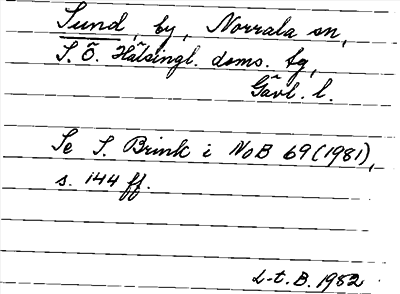 Sund, by, Norrala sn,
S. Ö. Hälsingl. doms. tg,
Gävl. l.
Se S. Brink i NoB 69 (1981),
s. 144 ff.
L-t. B. 1982